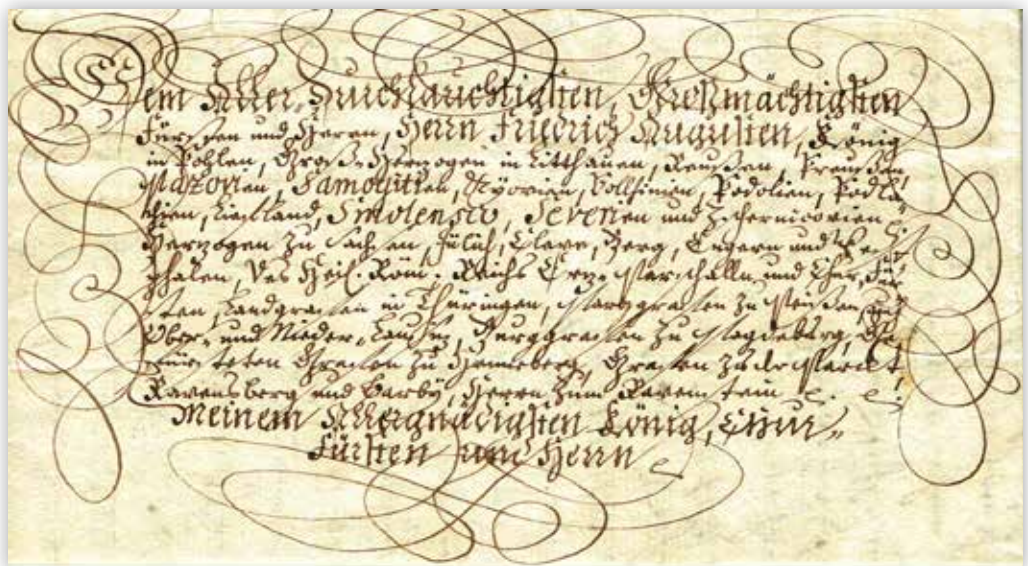 Dem Aller-Durchlauchtigsten, Großmächtigsten
Fürsten und Herrn, Herrn Friedrich Augusten, König
in Pohlen, Groß-Herzogen in Litthauen, Reußen, Preußen,
Mazovien, Samogitien, Kyovien, Vollhinien, Podolien, Podla-
chien, Liefland, Smolensco, Severien und Zschernicovien
Herzogen zu Sachsen, Jülich, Cleve, Berg, Engern und West-
phalen, des Heil. Röm. Reichs Erz-Marschalln und Chur-Für-
sten, Landgrafen in Thüringen, Marggrafen zu Meißen, und
Ober- und Nieder-Lausitz, Burggrafen zu Magdeburg, Ge-
fürsteten Grafen zu Henneberg, Grafen zu der Marck,
Ravensberg und Barby, Herrn zum Ravenstein
Meinem Allergnädigsten König, Chur-
Fürsten und Herrn